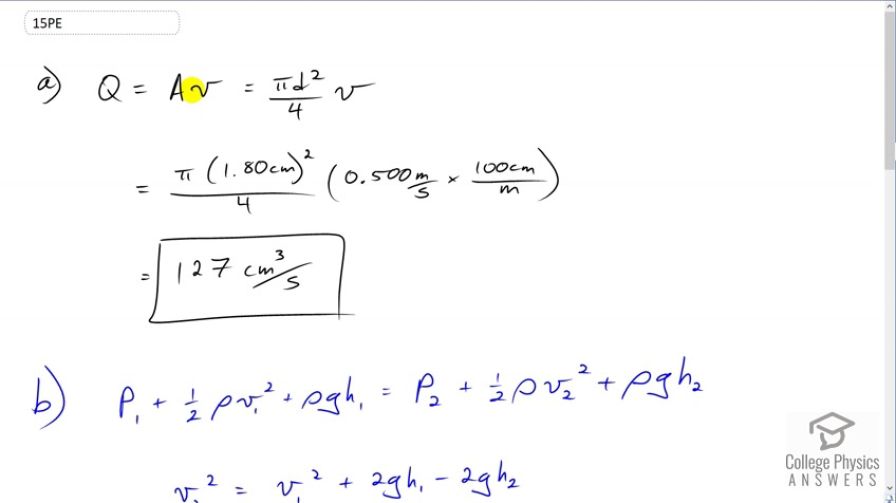 15PE
a) Q = Av = πd²/4 v
= π(1.80cm)²/4 (0.500 m/s × 100cm/m)
= 127 cm³/s
b) P₁ + ½ρv₁² + ρgh₁ = P₂ + ½ρv₂² + ρgh₂
v₂² = v₁² + 2gh₁ − 2gh₂
College Physics
ANSWERS